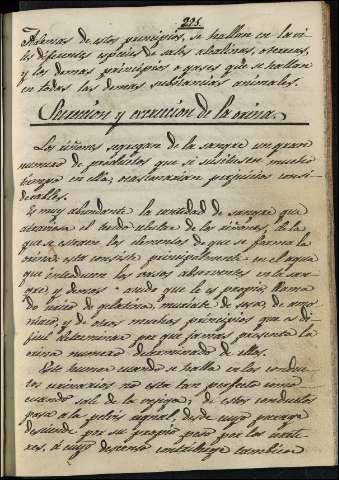 295.
Ademas de estos principios, se hallan en la vi-
lis diferentes especies de sales alcalinas, o terreas,
y los demas principios o gases que se hallan
en todas las demas substancias animales.
Secrecion y excrecion de la orina.
Los riñones segregan de la sangre un gran
numero de productos que si subsistiesen mucho
tiempo en ella, ocasionarian perjuicios consi-
derables.
Es muy abundante la cantidad de sangre que
atraviesa el tejido de los riñones, de la
que se estraen los elementos de que se forma la
orina: esta consiste principalmente en el agua
que introducen los vasos absorventes en la san-
gre, y demas acido que le es propio, llama-
do urico, de gelatina, muriate de sosa, de amo-
niaco, y de otros muchos principios que es di-
ficil determinar por que jamas presenta la
orina numero determinado de ellos.
Este humor cuando se halla en los conduc-
tos urinarios no esta tan perfecto como
cuando sale de la vejiga; de estos conductos
pasa a la pelvis, desde cuyo parage
desciende por su propio peso por los ure-
res, á cuyo descenso contribuye tambien